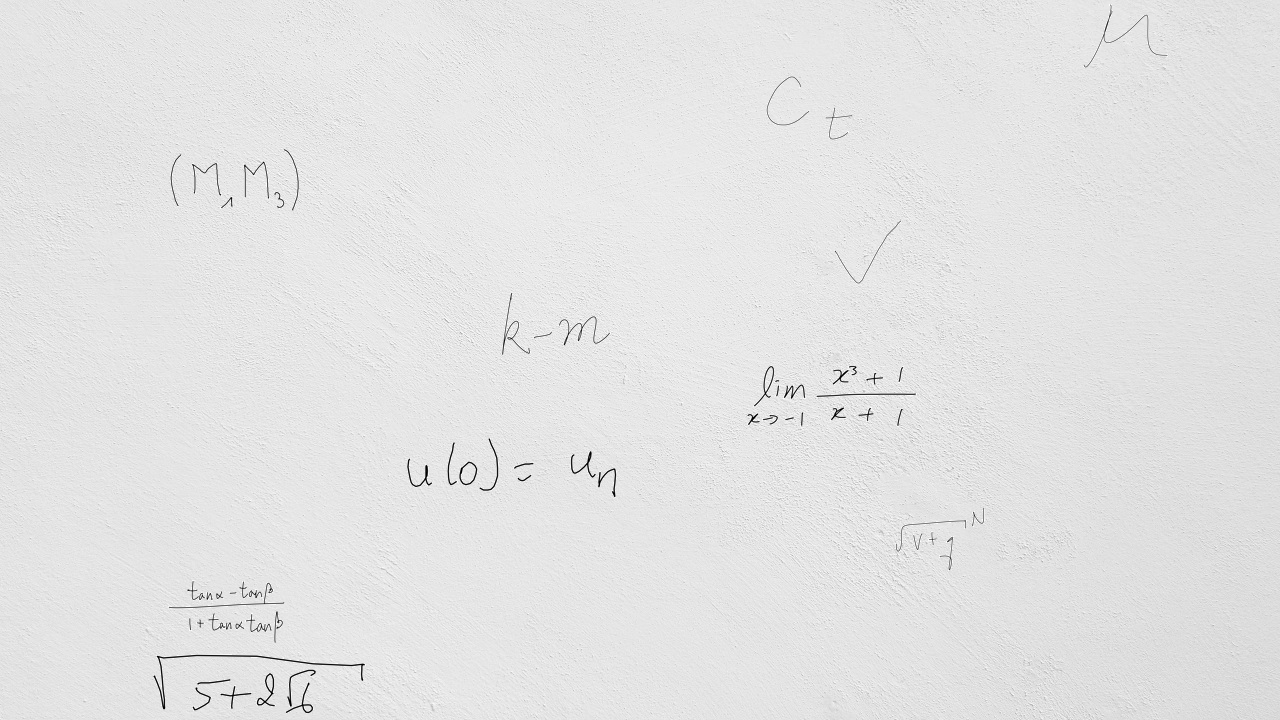 μ
C_t
(M_1 M_3)
√
k-m
\lim_{x \to -1} \frac{x^3+1}{x+1}
u(0) = u_n
\sqrt{v+q}^N
\frac{\tan\alpha - \tan\beta}{1+\tan\alpha\tan\beta}
\sqrt{5+2\sqrt{6}}